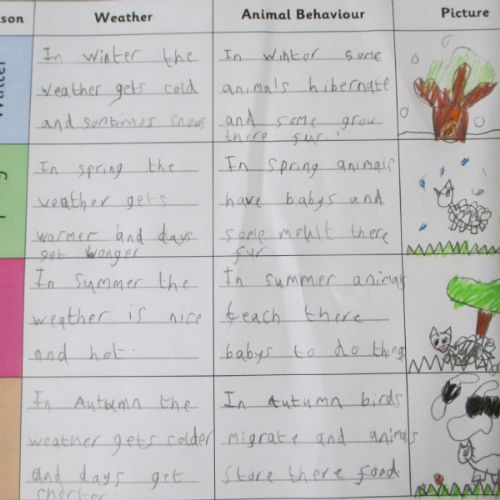 son
Weather
Animal Behaviour
Picture
In winter the
weather gets cold
and somtimes snows
In winter some
animals hibernate
and some grow
there fur.
In spring the
weather gets
warmer and days
get wonger
In spring animals
have babys and
some meult there
fur
In summer the
weather is nice
and hot.
In summer animals
teach there
babys to do things
In Autumn the
weather gets colder
and days get
shorter
In autumn birds
migrate and animals
store there food